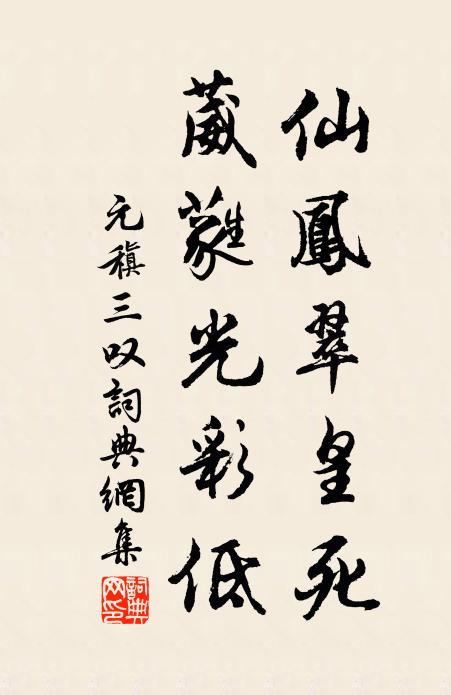 仙鳳翠皇死
葳蕤光彩低
元稹三叹詞典網集
詞典网印